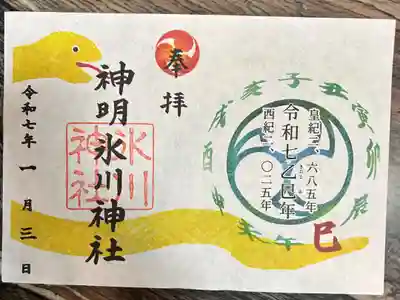 皇紀二、六八五年
令和七乙巳年
きのとみ
西紀二、〇二五年
子丑寅卯辰巳午未申酉戌亥
奉拝
神明氷川神社
氷川
神社
令和七年一月三日